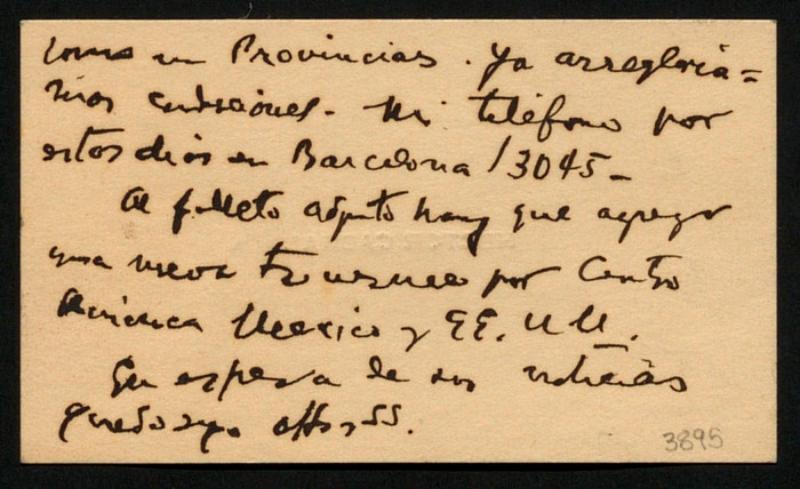 como en Provincias. Ya arreglaría-
mos condiciones. Mi teléfono por
estos días en Barcelona 13045-
Al folleto adjunto hay que agregar
una nueva tournee por Centro
América Mexico y EE. UU.
En espera de sus noticias
quedo suyo affo y SS.
3895